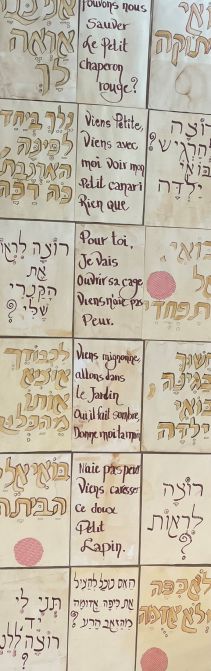 בואי
מתוקה
אראה
לך
Pouvons nous
Sauver
Le Petit
chaperon
rouge?
רוצה
להרגיש
ילדה?
נלך ביחד
Viens Petite,
Viens avec
moi Voir mon
Petit canari
Rien que
רוצה לראות
את
הקנרי
שלי?
Pour toi,
Je Vais
Ouvrir sa cage
Viens n'aie pas
Peur.
בואי
אל
תפחדי
לכבודך
אוציא
אותו
מהכלוב
Viens mignonne,
allons dans
Le Jardin
Ou il fait sombre,
Donne moi la main
חשוך
בגינה,
בואי
ילדה
בואי אלי
הביתה
N'aie pas peur
Viens caresser
ce doux
Petit
Lapin.
רוצה
לראות?
תני לי
יד
רוצה
האם נוכל להציל
את כיפה אדומה
מהזאב הרע?
לא כפה
ולא אדומה